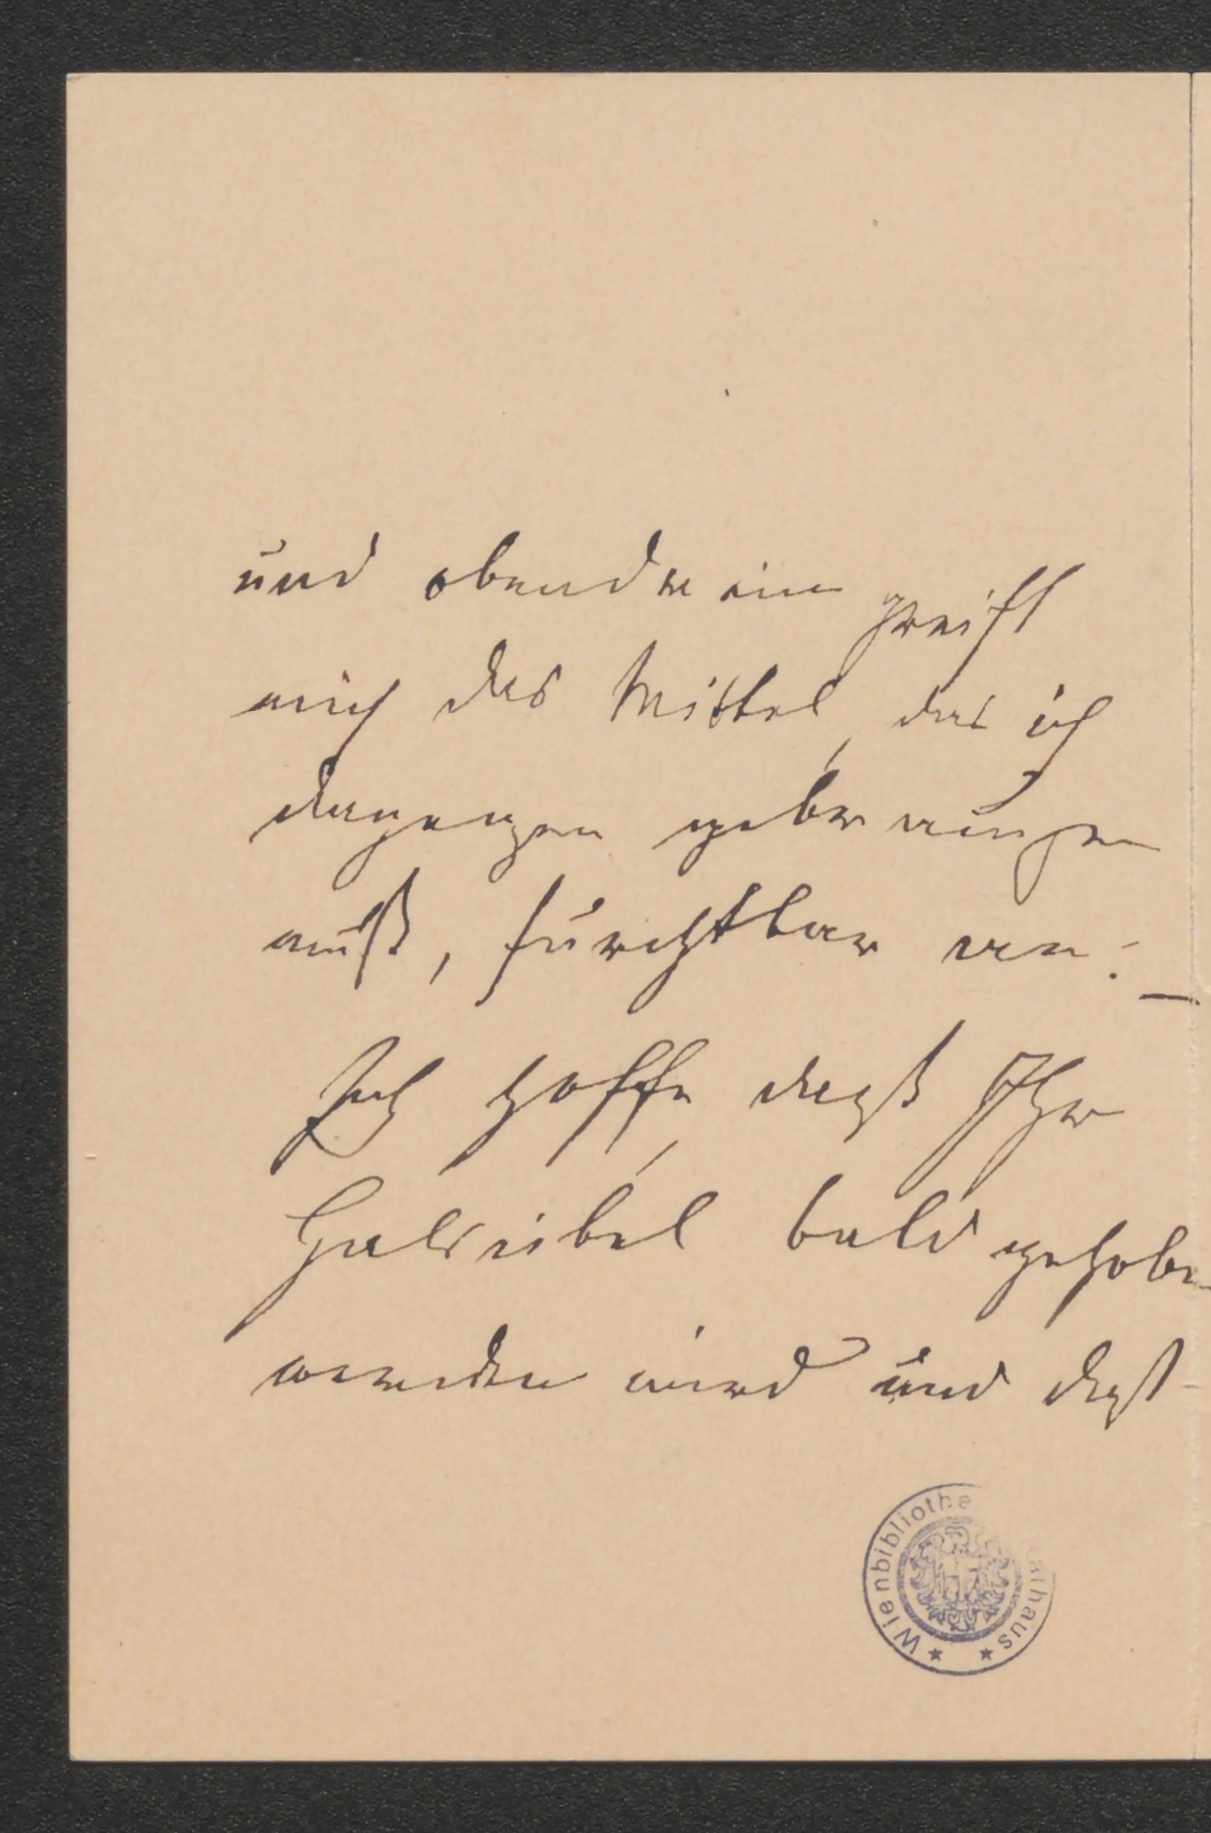 und obendrein greift
mich das Mittel, das ich
dagegen gebrauchen
muß, furchtbar an. –
Ich hoffe, daß Ihr
Halsübel bald gehoben
werden wird und daß
Wienbibliothe athaus